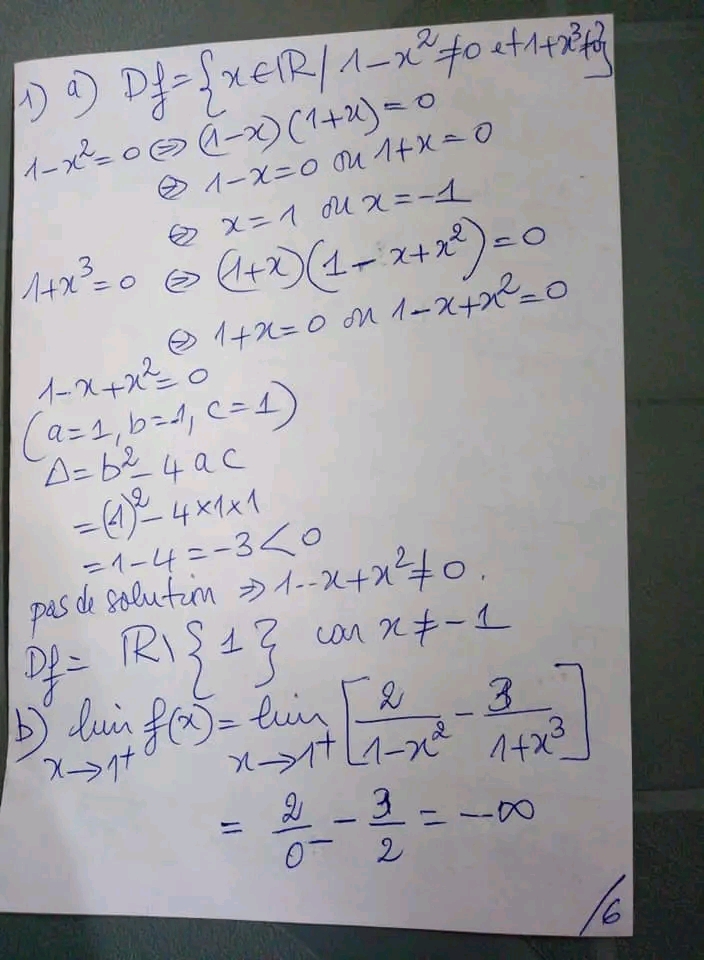 1) a) Df = {x ∈ ℝ / 1-x² ≠ 0 et 1+x³ ≠ 0}
1-x² = 0 ⇔ (1-x)(1+x) = 0
⇔ 1-x = 0 ou 1+x = 0
⇔ x = 1 ou x = -1
1+x³ = 0 ⇔ (1+x)(1-x+x²) = 0
⇔ 1+x = 0 ou 1-x+x² = 0
1-x+x² = 0
(a=1, b=-1, c=1)
Δ = b² - 4ac
= (-1)² - 4×1×1
= 1-4 = -3 < 0
pas de solution ⇒ 1-x+x² ≠ 0.
Df = ℝ\{1} car x ≠ -1
b) lim f(x) = lim [2/(1-x²) - 3/(1+x³)]
x→1⁺ x→1⁺
= 2/0⁻ - 3/2 = -∞
/6